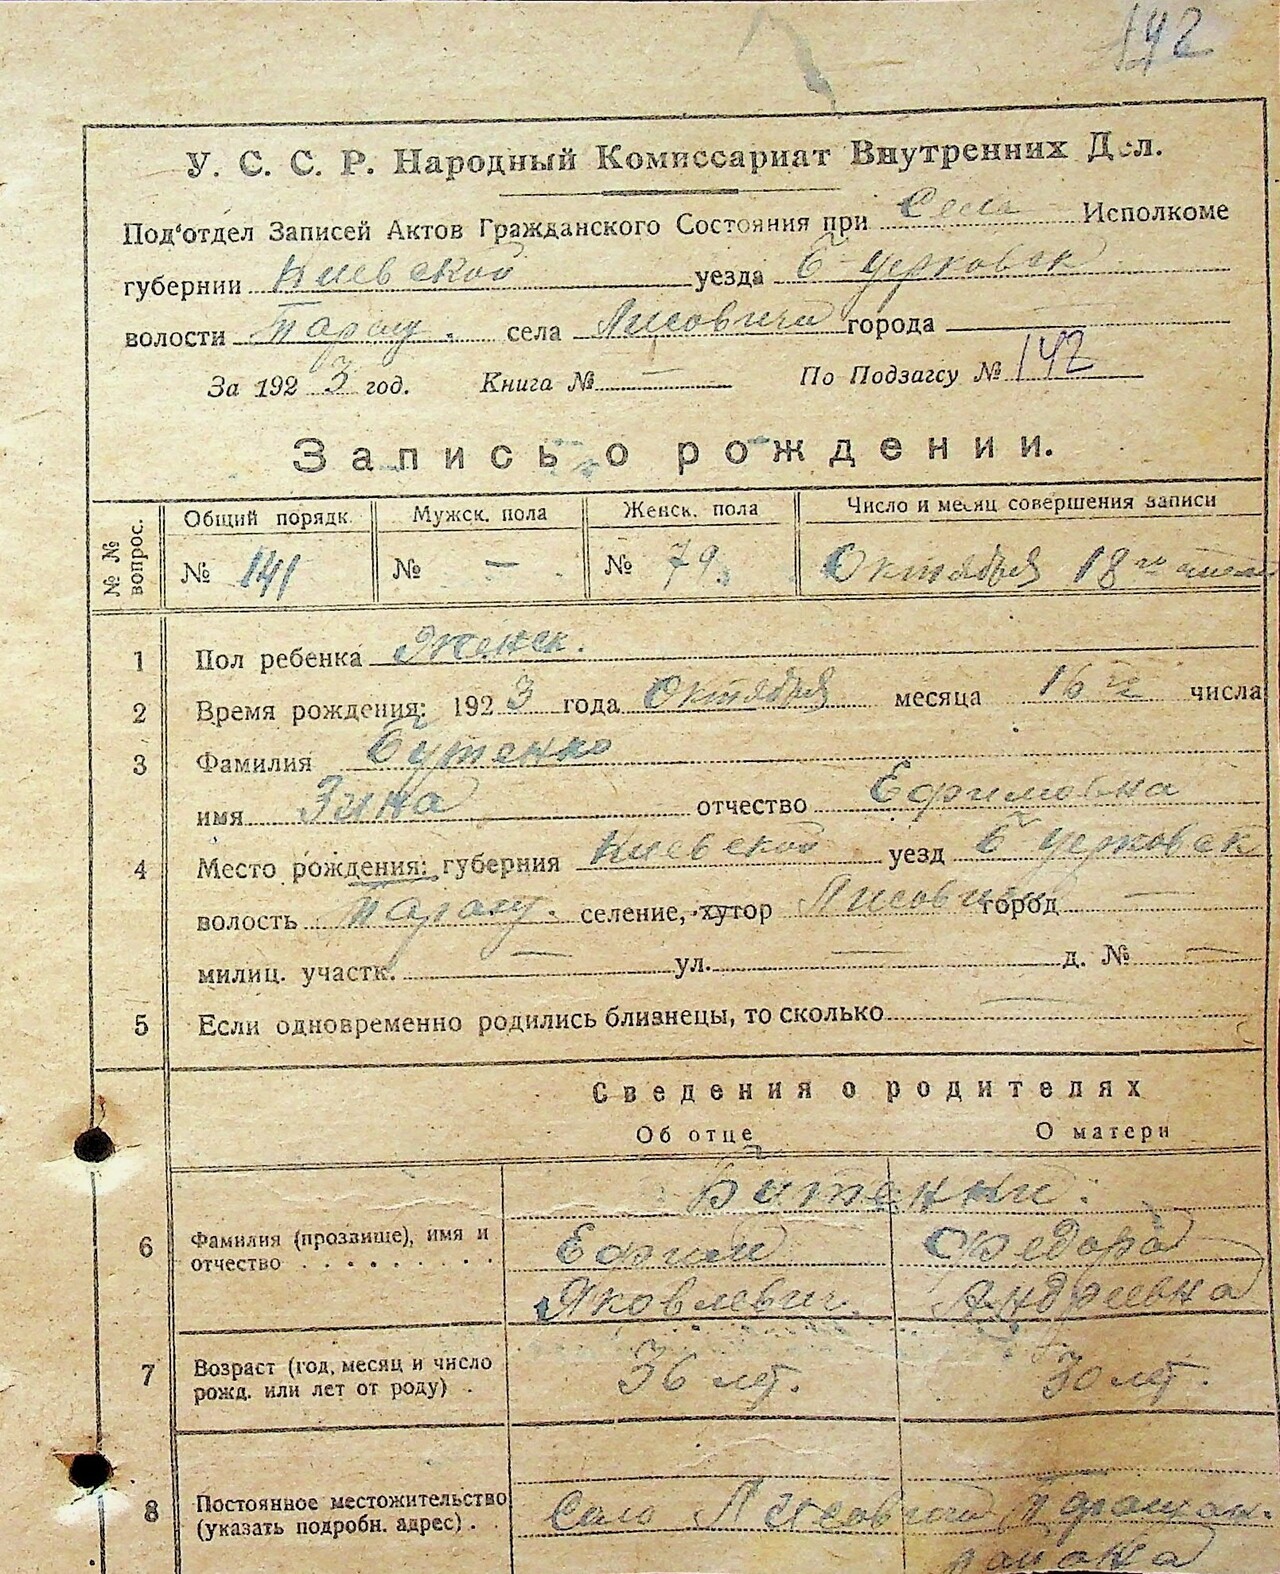 142
У. С. С. Р. Народный Комиссариат Внутренних Дел.
Под'отдел Записей Актов Гражданского Состояния при Села Исполкоме
губернии Киевской уезда Б Церковск
волости Таращ. села Лисовичи города —
За 1923 год. Книга № — По Подзагсу № 142
Запись о рождении.
№ № вопрос.
Общий порядк. Мужск. пола Женск. пола Число и месяц совершения записи
№ 141 № — № 79. Октября 18 го числа
1 Пол ребенка Женск.
2 Время рождения: 1923 года Октября месяца 16 го числа
3 Фамилия Бутенко
имя Зина отчество Ефимовна
4 Место рождения: губерния Киевской уезд Б Церковск
волость Таращ. селение, хутор Лисовичи город —
милиц. участк. — ул. — д. № —
5 Если одновременно родились близнецы, то сколько —
Сведения о родителях
Об отце О матери
Бутенки:
6 Фамилия (прозвище), имя и Ефим Федора
отчество . . . . . . . . . . Яковлевич. Андреевна
7 Возраст (год, месяц и число 36 лет. 30 лет.
рожд. или лет от роду) .
8 Постоянное местожительство Село Лисовичи Таращан.
(указать подробн. адрес) . района